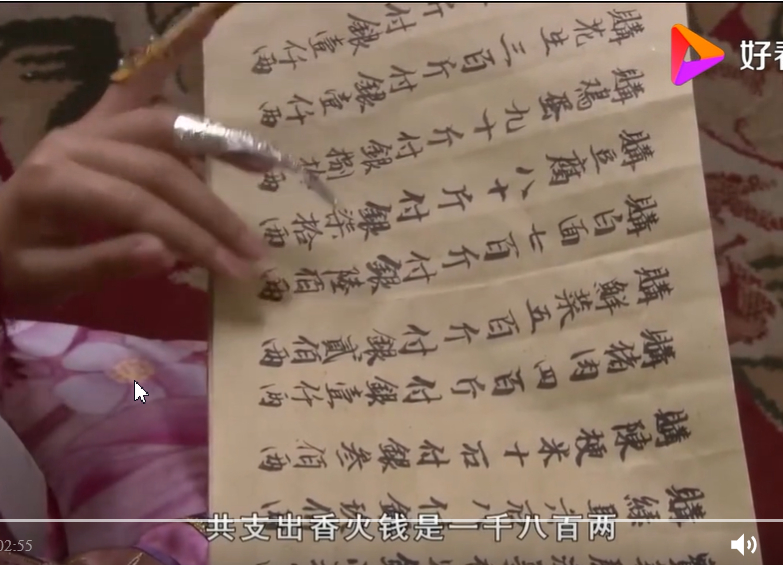 購陳粳米十石付銀叁佰兩
購猪肉四百斤付銀壹仟兩
購鮮菜五百斤付銀貳佰兩
購白面七百斤付銀陸佰兩
購豆腐八十斤付銀柒拾兩
購鷄蛋九十斤付銀捌兩
購花生三百斤付銀壹仟兩
付銀壹仟兩
好看
共支出香火钱是一千八百两
02:55